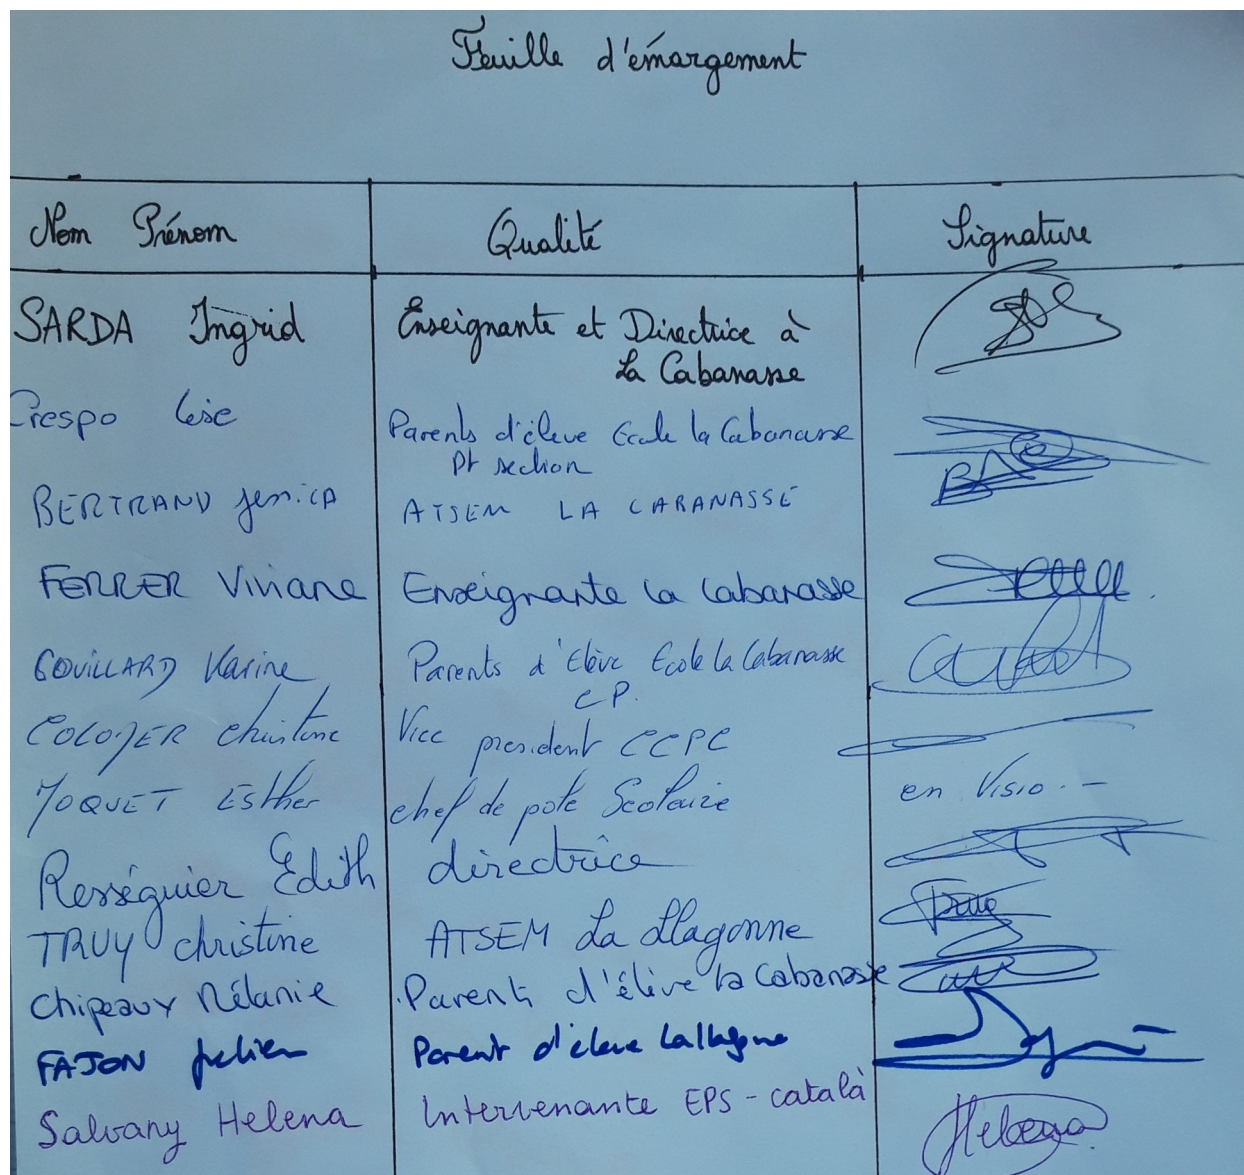 Feuille d'émargement
Nom Prénom Qualité Signature
SARDA Ingrid Enseignante et Directrice à
La Cabanasse
Crespo Lise Parents d'éleve Ecole la Cabanasse
Pt section
BERTRAND Jessica ATSEM LA CABANASSE
FERRER Viviane Enseignante la Cabanasse
GOUILLARD Karine Parents d'Elève Ecole la Cabanasse
CP.
COLOMER Christine Vice president CCPC
JOQUET Esther chef de pole Scolaire en Visio. -
Rességuier Edith directrice
TRUY Christine ATSEM La Llagonne
Chipeaux Mélanie Parents d'élève la Cabanasse
FAJON Julien Parent d'éleve Lallagne
Salvany Helena Intervenante EPS - català Helena